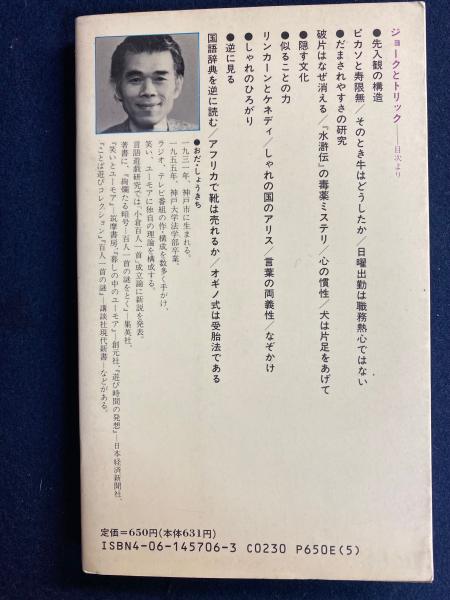 ジョークとトリック——目次より
●先入観の構造
ピカソと寿限無／そのとき牛はどうしたか／日曜出勤は職務熱心ではない
●だまされやすさの研究
破片はなぜ消える／『水滸伝』の毒薬ミステリ／心の慣性／犬は片足をあげて
●隠す文化
●似ることの力
リンカーンとケネディ／しゃれの国のアリス／言葉の両義性／なぞかけ
●しゃれのひろがり
●逆に見る
国語辞典を逆に読む／アフリカで靴は売れるか／オギノ式は受胎法である
●おだ・しょうきち
一九三一年、神戸市に生まれる。
一九五五年、神戸大学法学部卒業。
ラジオ、テレビ番組の作・構成を数多く手がけ、
笑い、ユーモアに独自の理論を構成する。
言語遊戯研究では、「小倉百人一首」成立論に新説を発表。
著書に、『絢爛たる暗号—百人一首の謎をとく』—集英社、
『笑いとユーモア』—筑摩書房、『暮しの中のユーモア』—創元社、『遊び時間の発想』—日本経済新聞社、
『ことば遊びコレクション』、『百人一首の謎』—講談社現代新書—などがある。
定価＝650円(本体631円)
ISBN4-06-145706-3 C0230 P650E(5)